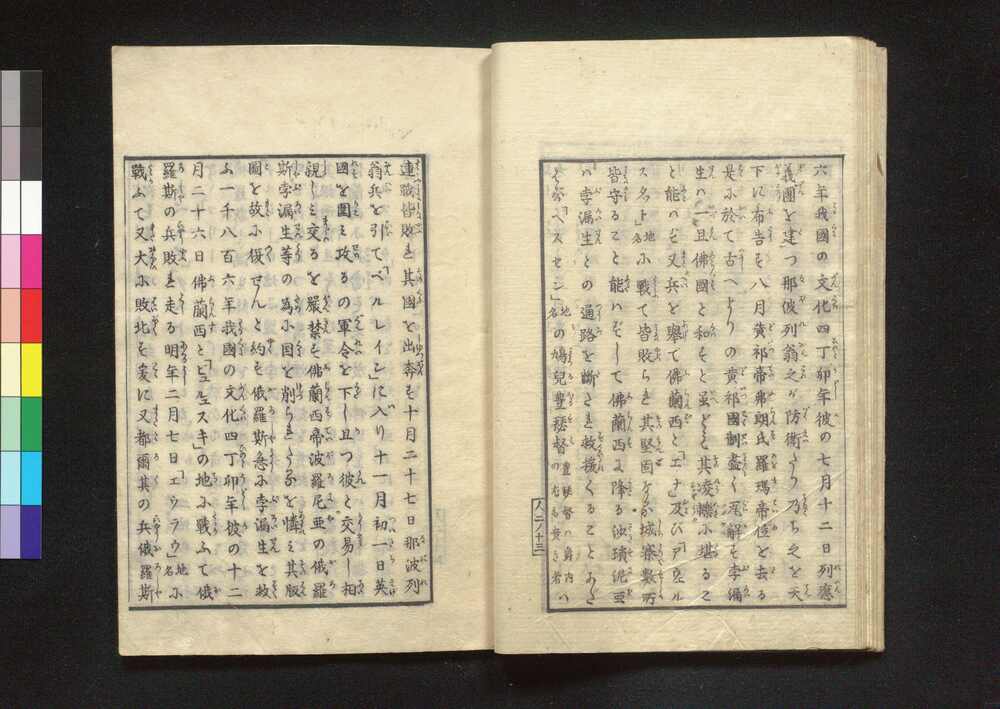 六年我國の文化四丁卯年彼の七月十二日列應
義國を建つ那彼列翁之が防衛たり乃ち之を天
下に布告を八月黄祁帝弗朗氏羅瑪帝位を去る
是に於て古へよりの黄祁國制盡く解も孛漏
生ハ一旦佛國と和もと雖ども其凌轢に堪るこ
と能ハぜ又兵を舉て佛蘭西と「エナ」及び
ス名ト」地名に戰て皆敗らを其堅固なる城寨數多
皆守ること能ハぜして佛蘭西に降る
ハ孛漏生との通路を斷さを救援くることあた
ヘスセン」地名の鳩兒
連戰皆敗を其国を出奔も十月二十七日那波列
翁兵を引てベルレイン」に入り十一月初一日英
國を圍み攻るの軍令を下し且つ彼と交易し相
親しみ交るを嚴禁も佛蘭西帝波羅尼亜の俄羅
斯孛漏生等の為に国を削らきたるを憐み其版
圖を故に復せんと約も俄羅斯急に孛漏生を救
ふ一千八百六年我國の文化四丁卯年彼の十二
月二十六日佛蘭西と「ピユルスキ」の地に戰ふて俄
羅斯の兵敗を走る明年二月七日エウラウ」地名に
戰ふて又大に敗北も爰に又都爾其の兵俄羅斯